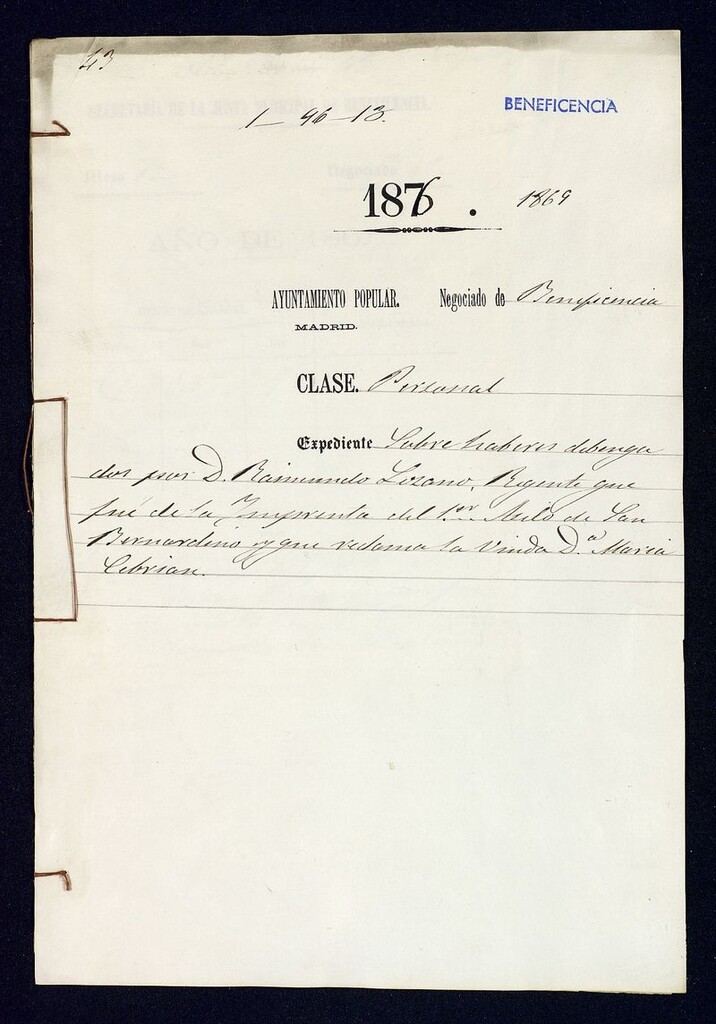 43
BENEFICENCIA
1-46-13.
1876. 1869
AYUNTAMIENTO POPULAR. Negociado de Beneficencia
MADRID.
CLASE. Personal
Expediente Sobre haberes debenga
dos por D. Raimundo Lozano, Regente que
fué de la Imprenta del 1.er Asilo de San
Bernardino y que reclama la Viuda D.ª Maria
Cebrian.